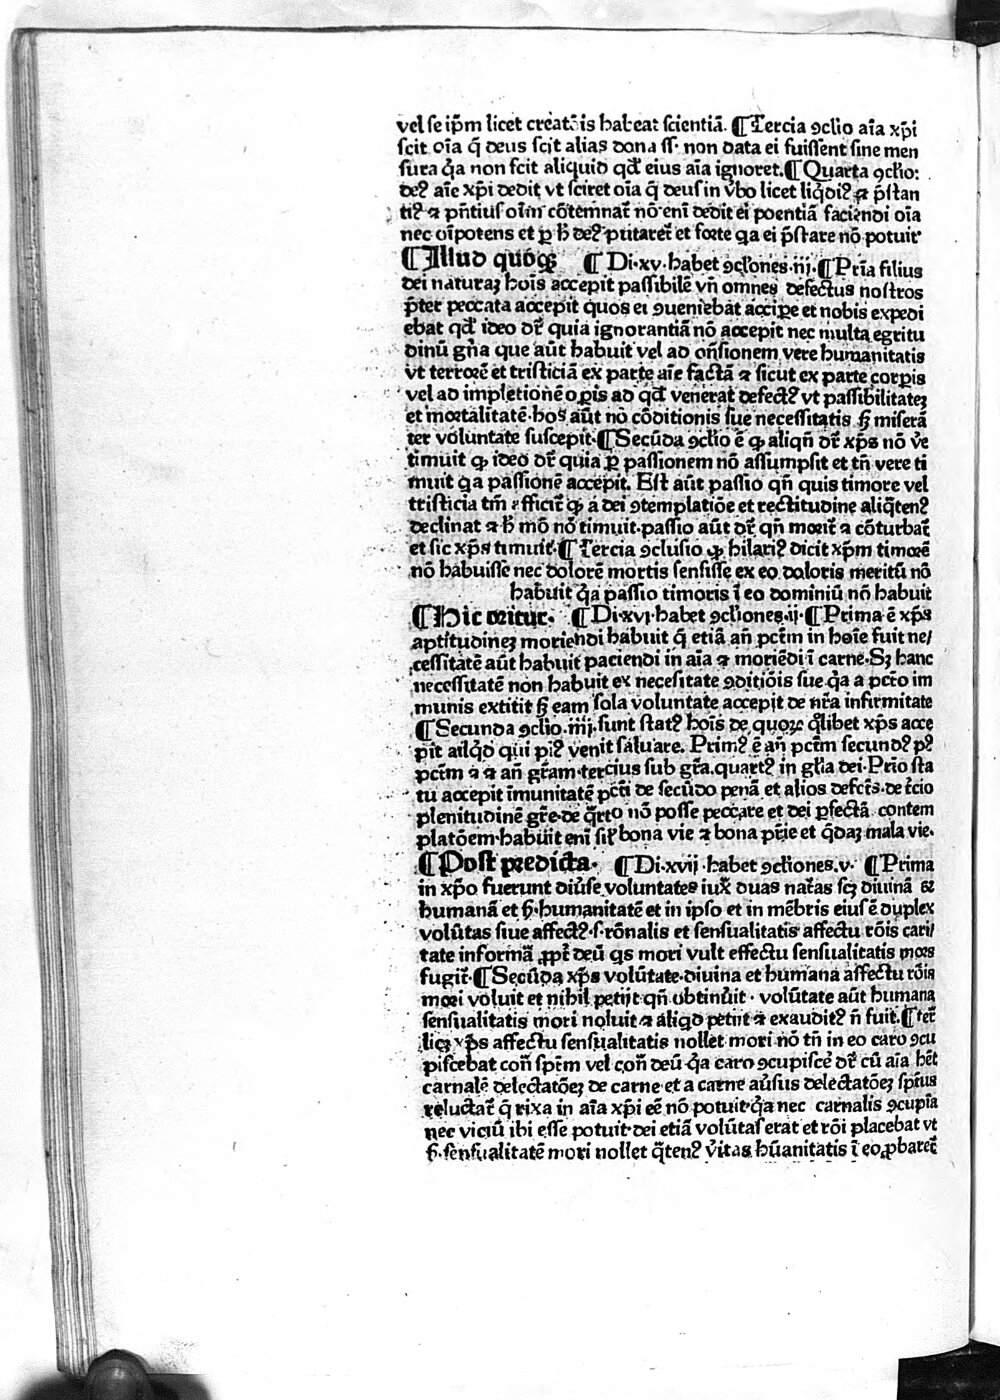 vel se ip̄m licet creatōis habeat scientiā. ¶ Tercia ꝯclio aīa xp̄i
scit oīa q̄ deus scit alias dona ſſ. non data ei fuissent sine men
sura q̄a non scit aliquid qd̓ eius aīa ignoret. ¶ Quarta ꝯclio:
deꝰ aīe xp̄i dedit vt sciret oīa q̄ deus in v̓bo licet liq̓diꝰ ⁊ p̄stan
tiꝰ ⁊ pn̄tius oīm cōtemnat̄ nō enī dedit ei poentiā faciendi oīa
nec oīpotens et ꝑ h̄ deꝰ ptitaret̄ et forte qa ei p̄stare nō potuit
¶ Illud quoꝙꝫ ¶ Di·xv·habet ꝯclones·iij·¶ Pria filius
dei naturaꝫ hoīs accepit passibilē vn̄ omnes defectus nostros
p̄ter peccata accepit quos ei ꝯueniebat accipe et nobis expedi
ebat qd̓ ideo dr̄ quia ignorantiā nō accepit nec multa egritu
dinū gn̄a que aūt habuit vel ad on̄sionem vere humanitatis
vt terrorē et tristiciā ex parte aīe factā ⁊ sicut ex parte corpis
vel ad impletionē opis ad qd̓ venerat defectꝰ vt passibilitateꝫ
et mortalitatē·hos aūt nō cōditionis sue necessitatis ẜꝫ miserā
ter voluntate suscepit·¶ Secūda ꝯclio ē ꝙ aliqn̄ dr̄ xp̄s nō v̓e
timuit ꝙ ideo dr̄ quia ꝑ passionem nō assumpsit et tn̄ vere ti
muit qa passionē accepit. Est aūt passio qn̄ quis timore vel
tristicia tm̄ efficit̄ ꝙ a dei ꝯtemplatiōe et rectitudine aliq̄tenꝰ
declinat ⁊ h̄ mō nō timuit·passio aūt dr̄ qn̄ morit̄ ⁊ cōturbat̄
et sic xp̄s timuit·¶ Tercia ꝯclusio ꝙ hilariꝰ dicit xp̄m timorē
nō habuisse nec dolorē mortis sensisse ex eo doloris meritū nō
habuit q̄a passio timoris ī eo dominiū nō habuit
¶ Hic oritur· ¶ Di·xvj·habet ꝯclones·ij·¶ Prima ē xp̄s
aptitudineꝫ moriendi habuit q̄ etiā an̄ pctm̄ in hoīe fuit ne/
cessitatē aūt habuit paciendi in aīa ⁊ moriēdi ī carne·Sꝫ hanc
necessitatē non habuit ex necesitate ꝯditiōis sue q̄a a pctō im
munis extitit ẜꝫ eam sola voluntate accepit de nr̄a infirmitate
¶ Secunda ꝯclio·iiij·sunt statꝰ hoīs de quorꝫ q̓libet xp̄s acce
pit aliq̓d qui piꝰ venit saluare. Primꝰ ē an̄ pctm̄ secundꝰ pꝰ
pctm̄ ⁊ ⁊ an̄ gr̄am·tercius sub gr̄a·quartꝰ in gl̄ia dei·Prīo sta
tu accepit īmunitatē pcti de secūdo penā et alios defct̄s·de t̓cio
plenitudinē gr̄e·de q̓rto nō posse peccare et dei ꝑfectā contem
platōem·habuit enī sil̓ bona vie ⁊ bona pr̄ie et q̄daꝫ mala vie·
¶ Post predicta· ¶ Di·xvij·habet ꝯcliones·v· ¶ Prima
in xp̄o fuerunt diu̓se voluntates iux̄ duas nat̄as scꝫ diuinā ⁊
humanā et ẜꝫ·humanitatē et in ipso et in mēbris eius ē duplex
volūtas siue affectꝰ·s·rōnalis et sensualitatis affectu rōis cari/
tate informā ꝓpt̄ deū qs mori vult effectu sensualitatis mors
fugit̄·¶ Secūda xp̄s volūtate·diuina et humana affectu rōis
mori voluit et nihil petijt qn̄ obtinuit·volūtate aūt humana
sensualitatis mori noluit ⁊ aliqd petijt ⁊ exauditꝰ n̄ fuit.¶ ter̄
licꝫ xp̄s affectu sensualitatis nollet mori nō tn̄ in eo caro ꝯcu
piscebat con̄ spm̄ vel con̄ deū·q̄a caro ꝯcupisce̓ dr̄ cū aīa hēt
carnalē delectatōeꝫ de carne et a carne au̓sus delectatōeꝫ sp̄us
reluctat̄ q̄ rixa in aīa xp̄i eē nō potuit·q̄a nec carnalis ꝯcupīa
nec viciū ibi esse potuit·dei etiā volūtas erat et rōi placebat vt
ẜꝫ·sensualitatē mori nollet q̄tenꝰ v̓itas hūanitatis ī eo ꝓbaret̄